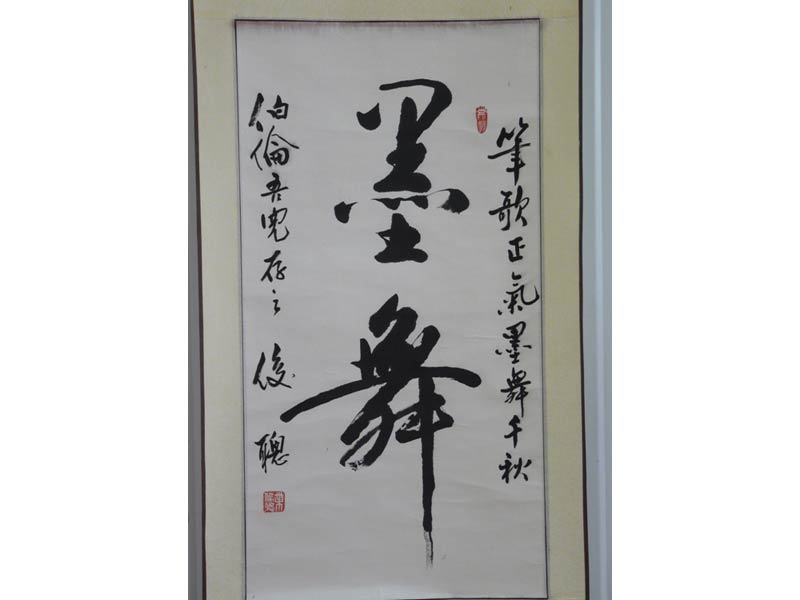 筆歌正氣墨舞千秋
墨舞
伯倫吾兒存之 俊聰